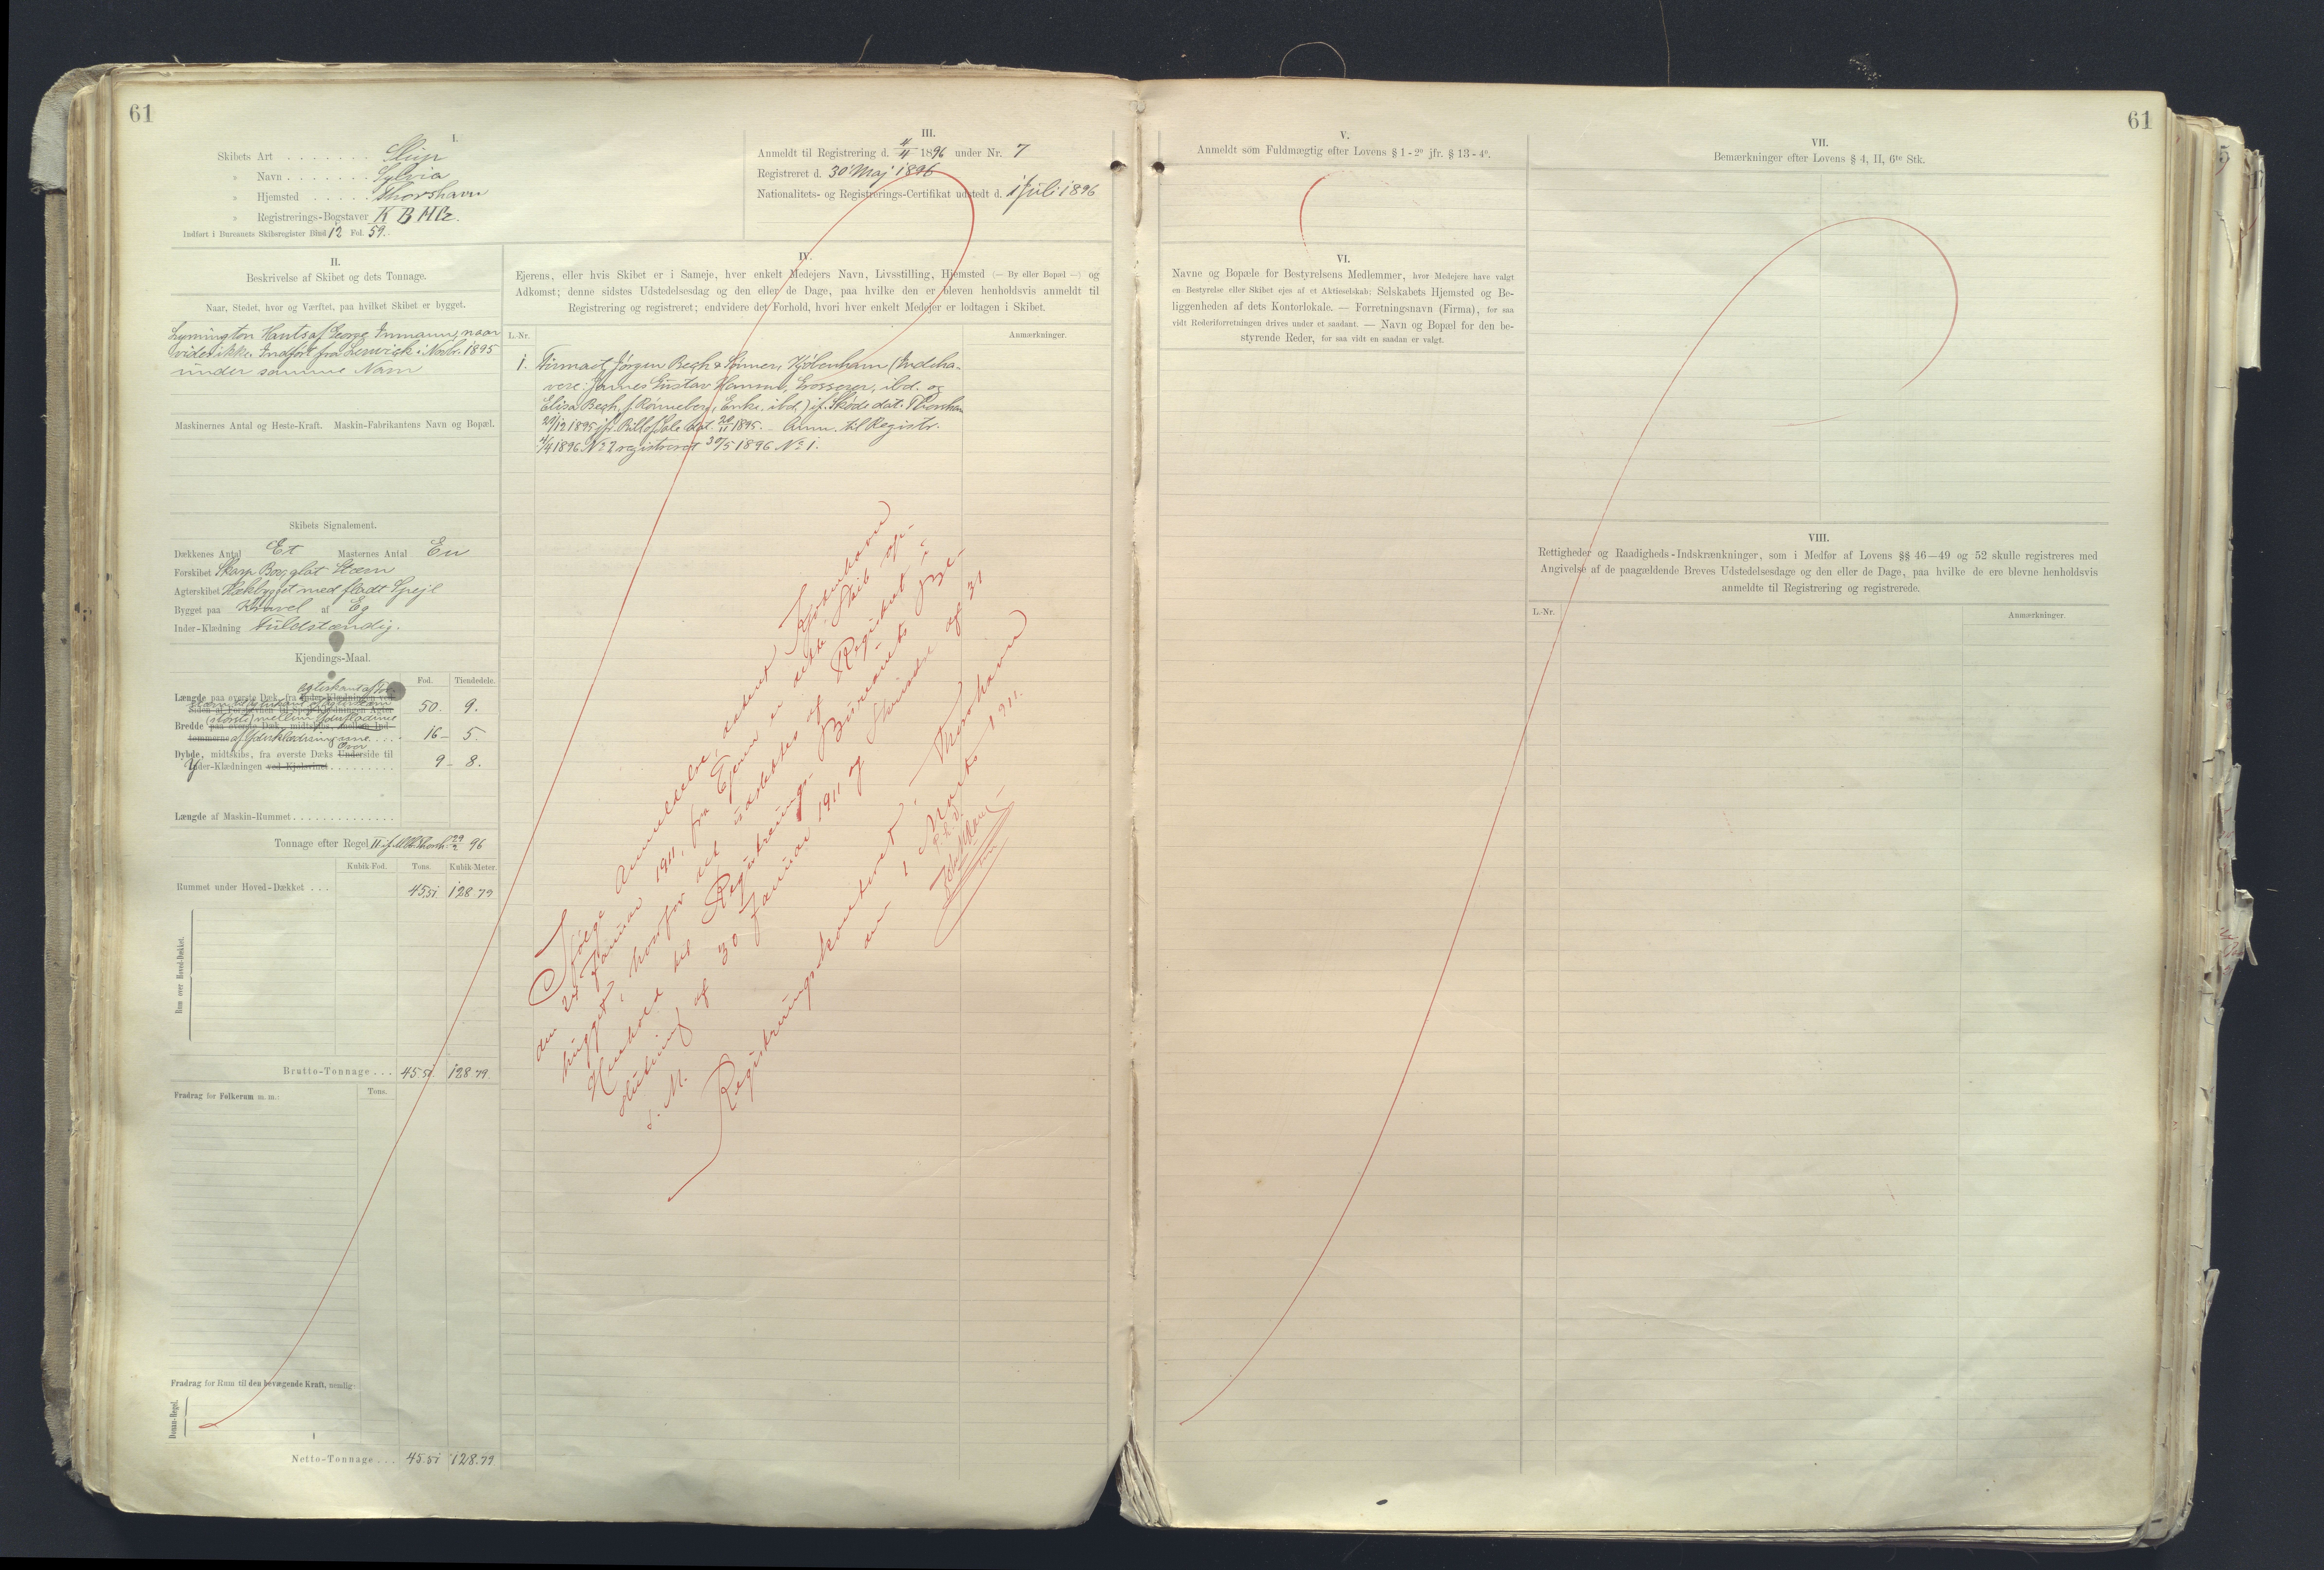 61
I.
Skibets Art . . . . . . . Slup
» Navn . . . . . . . Sylvia
» Hjemsted . . . . . Thorshavn
» Registrerings-Bogstaver
Indført i Bureauets Skibsregister Bind 12 Fol. 59.
III.
Anmeldt til Registrering d. 4/4 1896 under Nr. 7
Registreret d. 30 Maj 1896
Nationalitets- og Registrerings-Certifikat udstedt d. 1 Juli 1896
II.
Beskrivelse af Skibet og dets Tonnage.
Naar, Stedet, hvor og Værftet, paa hvilket Skibet er bygget.
Lymington Hants af George Inmann, naar
vides ikke. Indført fra Lerwick i Novbr. 1895
under samme Navn
Maskinernes Antal og Heste-Kraft. Maskin-Fabrikantens Navn og Bopæl.
Skibets Signalement.
Dækkenes Antal Et Masternes Antal En
Forskibet Skarp Bov, glat Stævn
Agterskibet Hækbygget med fladt Spejl
Bygget paa Kravel af Eg
Inder-Klædning Fuldstændig.
Kjendings-Maal.
Fod. Tiendedele.
Længde paa øverste Dæk, fra 50. 9.
Bredde (størst) mellem Yderfladerne
af Yderklædningerne . . . 16 - 5.
Dybde, midtskibs, fra øverste Dæks Overside til
Yder-Klædningen ved Kjølsvinet . . . . . . . . . 9 - 8.
Længde af Maskin-Rummet . . . . . . . . . . . . . .
Tonnage efter Regel II 29/2 96
Kubik-Fod. Tons. Kubik-Meter.
Rummet under Hoved-Dækket . . . 45.51 128.79
Rum over Hoved-Dækket.
Brutto-Tonnage . . . 45.51. 128.79.
Fradrag for Folkerum m. m.: Tons.
Fradrag for Rum til den bevægende Kraft, nemlig:
Donau-Regel.
Netto-Tonnage . . . 45.51 128.79
IV.
Ejerens, eller hvis Skibet er i Sameje, hver enkelt Medejers Navn, Livsstilling, Hjemsted (— By eller Bopæl —) og
Adkomst; denne sidstes Udstedelsesdag og den eller de Dage, paa hvilke den er bleven henholdsvis anmeldt til
Registrering og registreret; endvidere det Forhold, hvori hver enkelt Medejer er lodtagen i Skibet.
L.-Nr. Anmærkninger.
1. Firmaet Jørgen Bech & Sønner, Kjøbenhavn (Indeha-
vere: James Gustav Hannover, Grosserer, ibd. og
Elisa Bech, f. Rønneberg, Enke, ibd.) if. Skøde dat. Thorshavn
20/12 1895 jfr. Bill of Sale dat. 26/11 1895. Anm. til Registr.
4/4 1896 No 7 registreret 30/5 1896 No 1.
Ifølge Anmeldelse, dateret Kjøbenhavn
den 24 Januar 1911, fra Ejeren er dette Skib op-
hugget, hvorfor det udslettes af Registret i
Henhold til Registrerings-Bureauets Be-
slutning af 30 Januar 1911 og Skrivelse af 31
s. M.
Registreringskontoret, Thorshavn
den 1 Marts 1911.
61
V.
Anmeldt som Fuldmægtig efter Lovens § 1-2° jfr. § 13-4°.
VI.
Navne og Bopæle for Bestyrelsens Medlemmer, hvor Medejere have valgt
en Bestyrelse eller Skibet ejes af et Aktieselskab: Selskabets Hjemsted og Be-
liggenheden af dets Kontorlokale. — Forretningsnavn (Firma), for saa
vidt Rederiforretningen drives under et saadant. — Navn og Bopæl for den be-
styrende Reder, for saa vidt en saadan er valgt.
VII.
Bemærkninger efter Lovens § 4, II, 6te Stk.
VIII.
Rettigheder og Raadigheds-Indskrænkninger, som i Medfør af Lovens §§ 46—49 og 52 skulle registreres med
Angivelse af de paagældende Breves Udstedelsesdage og den eller de Dage, paa hvilke de ere blevne henholdsvis
anmeldte til Registrering og registrerede.
L.-Nr. Anmærkninger.